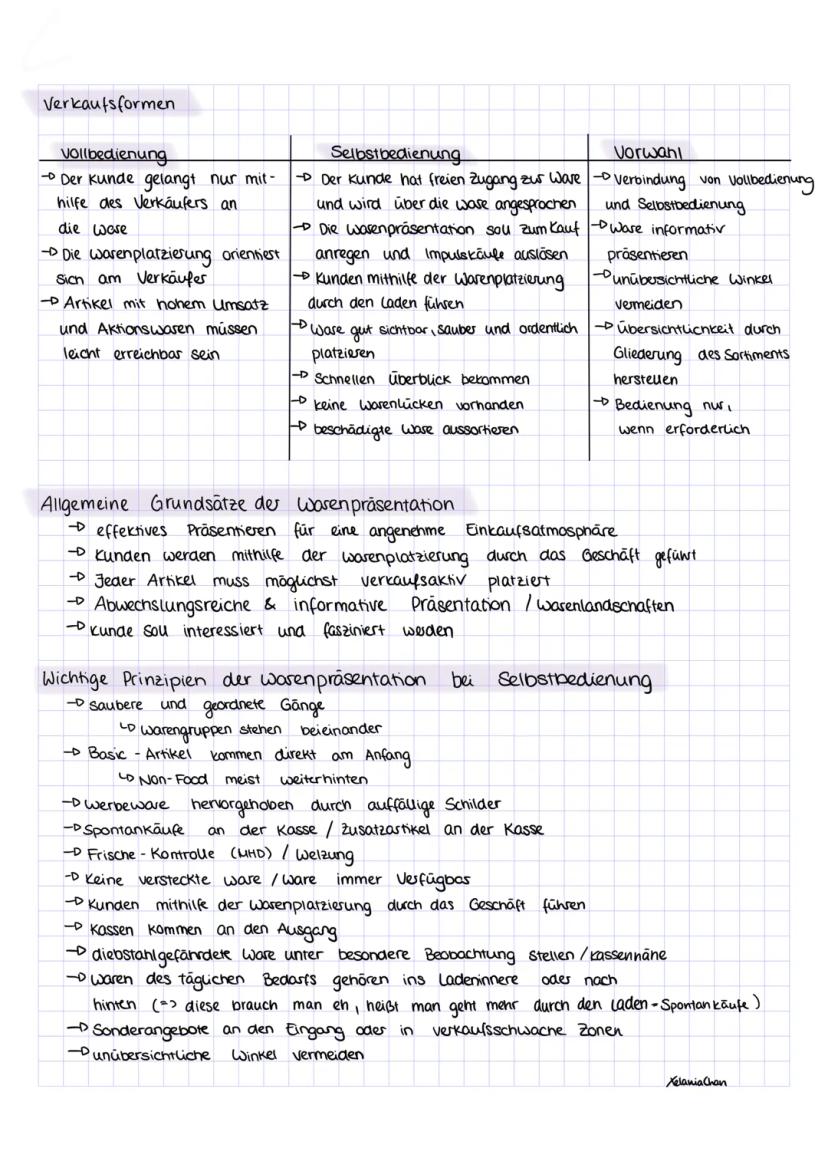 Verkaufsformen
Vollbedienung
→ Der Kunde gelangt nur mit-
hilfe des Verkäufers an
die Ware
→ Die Warenplatzierung orientiert
sich am Verkäufer
→ Artikel mit hohem Umsatz
und Aktionswaren müssen
leicht erreichbar sein
Selbstbedienung
→ Der Kunde hat freien Zugang zur Ware
und wird über die Ware angesprochen
→ Die Warenpräsentation soll zum Kauf
anregen und Impulskäufe auslösen
→ Kunden mithilfe der Warenplatzierung
durch den Laden führen
→ Ware gut sichtbar, sauber und ordentlich
platzieren
→ Schnellen Überblick bekommen
→ keine Warenlücken vorhanden
→ beschädigte Ware aussortieren
Vorwahl
→ Verbindung von Vollbedienung
und Selbstbedienung
→ Ware informativ
präsentieren
→ unübersichtliche Winkel
vermeiden
→ Übersichtlichkeit durch
Gliederung des Sortiments
herstellen
→ Bedienung nur,
wenn erforderlich
Allgemeine Grundsätze der Warenpräsentation
→ effektives Präsentieren für eine angenehme Einkaufsatmosphäre
→ Kunden werden mithilfe der Warenplatzierung durch das Geschäft geführt
→ Jeder Artikel muss möglichst verkaufsaktiv platziert
→ Abwechslungsreiche & informative Präsentation / Warenlandschaften
→ Kunde soll interessiert und fasziniert werden
Wichtige Prinzipien der Warenpräsentation bei Selbstbedienung
→ saubere und geordnete Gänge
↳ Warengruppen stehen beieinander
→ Basic - Artikel kommen direkt am Anfang
↳ Non-Food meist weiterhinten
→ Werbeware hervorgehoben durch auffällige Schilder
→ Spontankäufe an der Kasse / Zusatzartikel an der Kasse
→ Frische - Kontrolle (MHD) / Welzung
→ Keine versteckte Ware / Ware immer Verfügbar
→ Kunden mithilfe der Warenplatzierung durch das Geschäft führen
→ Kassen kommen an den Ausgang
→ diebstahlgefährdete Ware unter besondere Beobachtung stellen / Kassennähe
→ Waren des täglichen Bedarfs gehören ins Ladeninnere oder nach
hinten (=> diese brauch man eh, heißt man geht mehr durch den Laden - Spontankäufe)
→ Sonderangebote an den Eingang oder in verkaufsschwache Zonen
→ unübersichtliche Winkel vermeiden
XelaniaChan